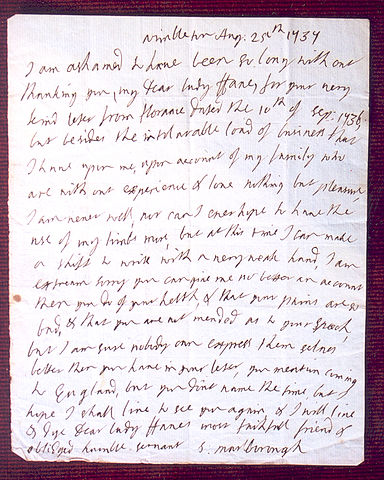 wimbleton Aug: 25th 1737
I am ashamed to have been so long with out
thanking you, my Dear Lady ffanes for your very
kind leter from florance Dated the 10th of sep: 1736,
but besides the intolarable load of business that
I have upon me, upon account of my family who
are with out experience & love nothing but pleasure,
I am never well, nor can I ever hope to have the
use of my limbs more, but at this time I can make
a shift to write with a very weak hand, I am
extream sorry you can give me no beter an account
then you do of your helth, & that your pains are so
bad, & that you are not mended as to your
but I am sure nobody can express them selves
beter then you have in your leter, you mention coming
to England, but you dont name the time but I
hope I shall live to see you again, & I will live
& Dye Dear Lady ffanes most faithfull friend &
obliged humble servant S. Marlborough